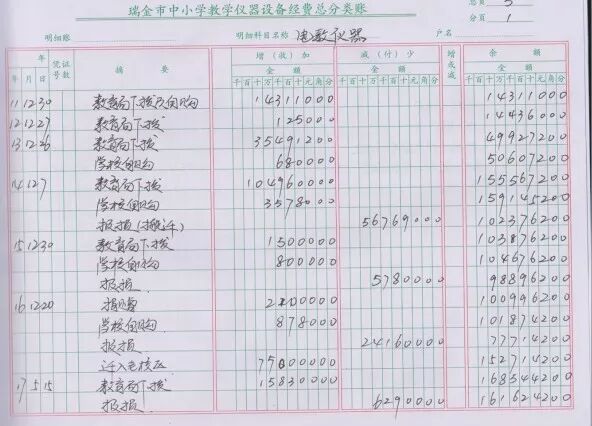 瑞金市中小学教学仪器设备经费总分类账
总页 5
分页 1
明细账 明细科目名称 电教仪器 户名
年 月 日 凭证号数 摘要 增(收)加 减(付)少 增或减 余额
金额 金额
千百十万千百十元角分 千百十万千百十元角分 千百十万千百十元角分
11 12 30 教育局下拨及自购 14311000 14311000
12 12 27 教育局下拨 125000 14436000
13 12 26 教育局下拨 35491200 49927200
学校自购 680000 50607200
14 12 7 教育局下拨 104960000 155567200
学校自购 3578000 159145200
报损(搬迁) 56769000 102376200
15 12 30 教育局下拨 1500000 103876200
学校自购 800000 104676200
报损 5780000 98896200
16 12 20 捐赠 2100000 100996200
学校自购 878000 101874200
报损 24160000 77714200
迁入老校区 75000000 152714200
17 5 15 教育局下拨 15830000 168544200
报损 6290000 161624200